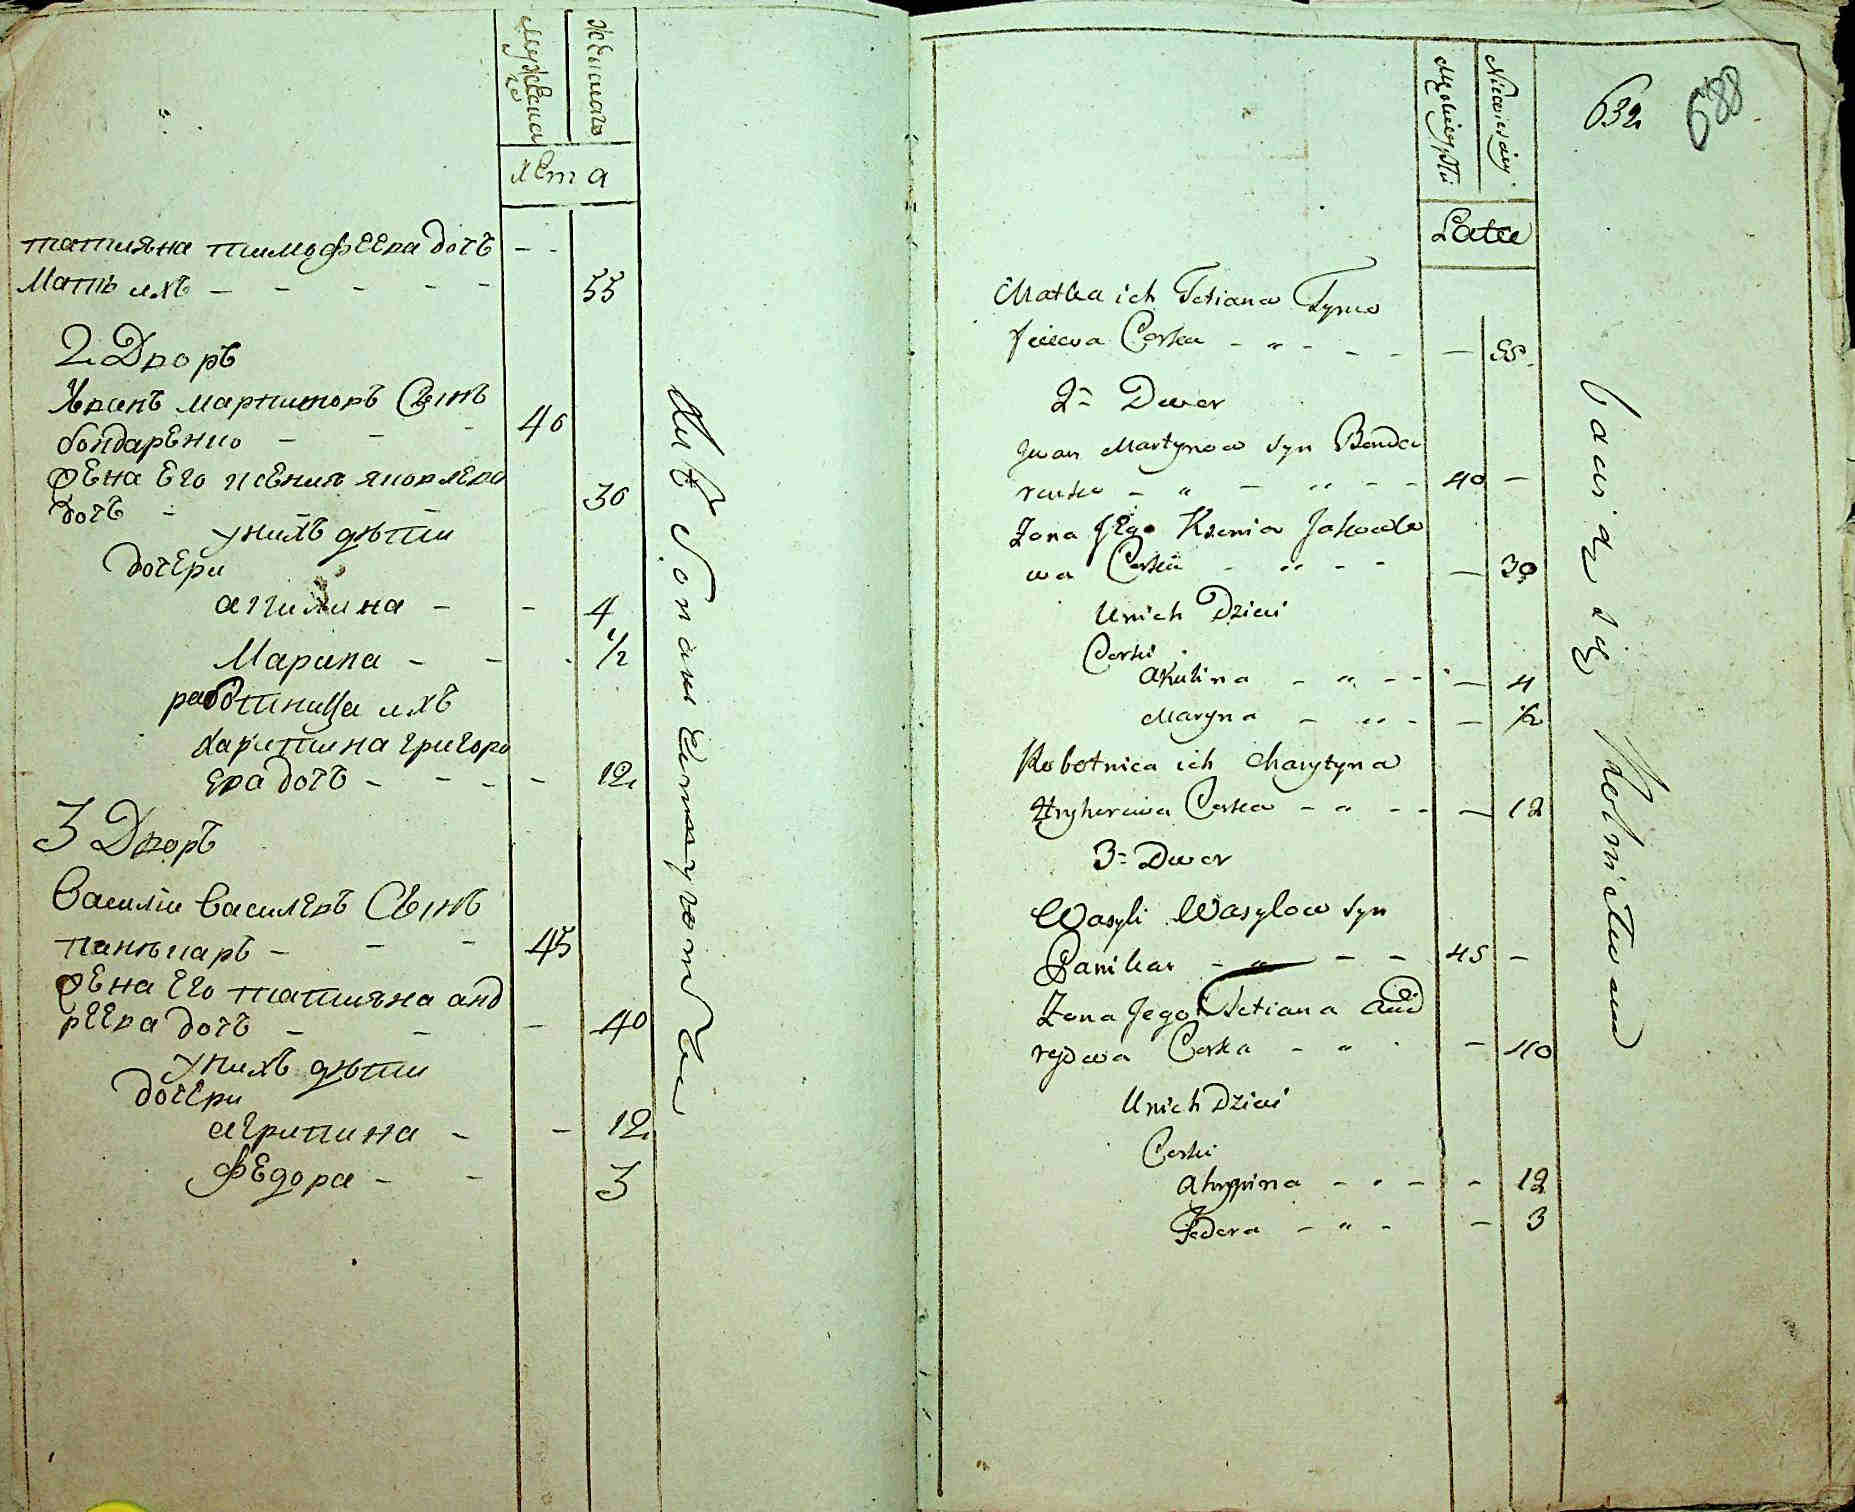 Мужеска
го
Женскаго
Лета
татияна тимофеева дочъ
Мать ихъ 55
2 Дворъ
Иванъ мартиновъ Сынъ
бондаренко 40
Жена Его ксения яковлева
дочъ 30
у нихъ дѣти
дочери
акилина 4
Марина 1/2
работница ихъ
харитина григорв
ева дочъ 12
3 Дворъ
Василiи василевъ Сынъ
панькаръ 45
Жена Его татияна анд
реева дочъ 40
у нихъ дѣти
дочери
агрипина 12
федора 3
Męskiey płci
Niewieściey
Lata
632
688
Matka ich Tetiana Tymo
fiiewa Corka 55
2 Dwor
Jwan Martynow syn Bonda
renko 40
Zona Jego Ksenia Jakowle
wa Corka 30
U nich Dzieci
Corki
Akulina 4
Maryna 1/2
Robotnica ich Charytyna
Hryhorewa Corka 12
3 Dwor
Wasyli Wasylow syn
Pańkar 45
Zona Jego Tetiana And
rejowa Corka 40
U nich Dzieci
Corki
Ahrypina 12
Fedora 3